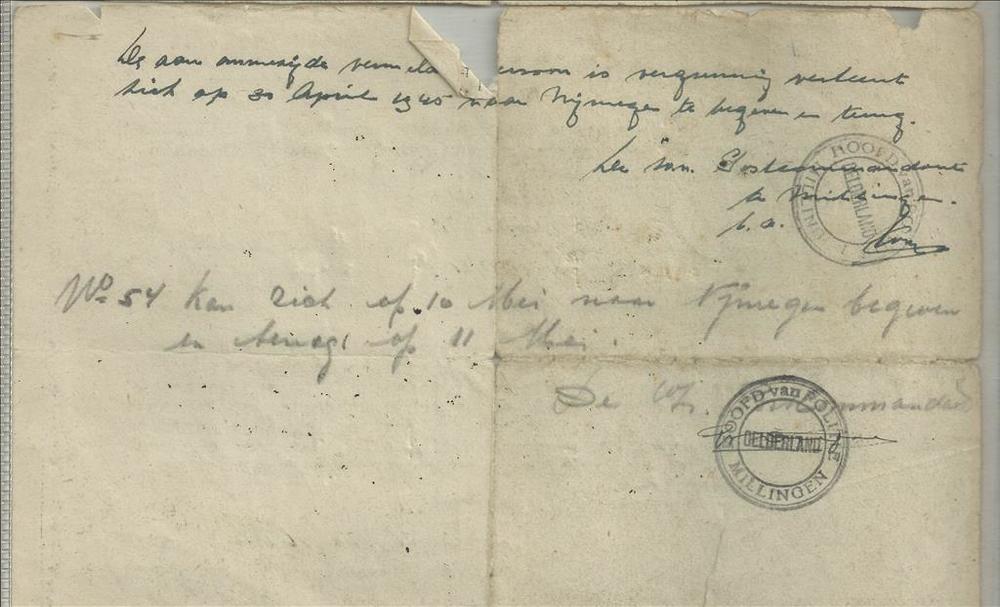 De aan ommezijde vermelde persoon is vergunning verleent
zich op 30 April 1945 naar Nijmegen te begeven en terug.
De Postcommandant
te Millingen.
b.a.
HOOFD van POLITIE
GELDERLAND
No 54 kan zich op 10 Mei naar Nijmegen begeven
en terug op 11 Mei.
De Commandant
HOOFD van POLITIE
GELDERLAND
MILLINGEN